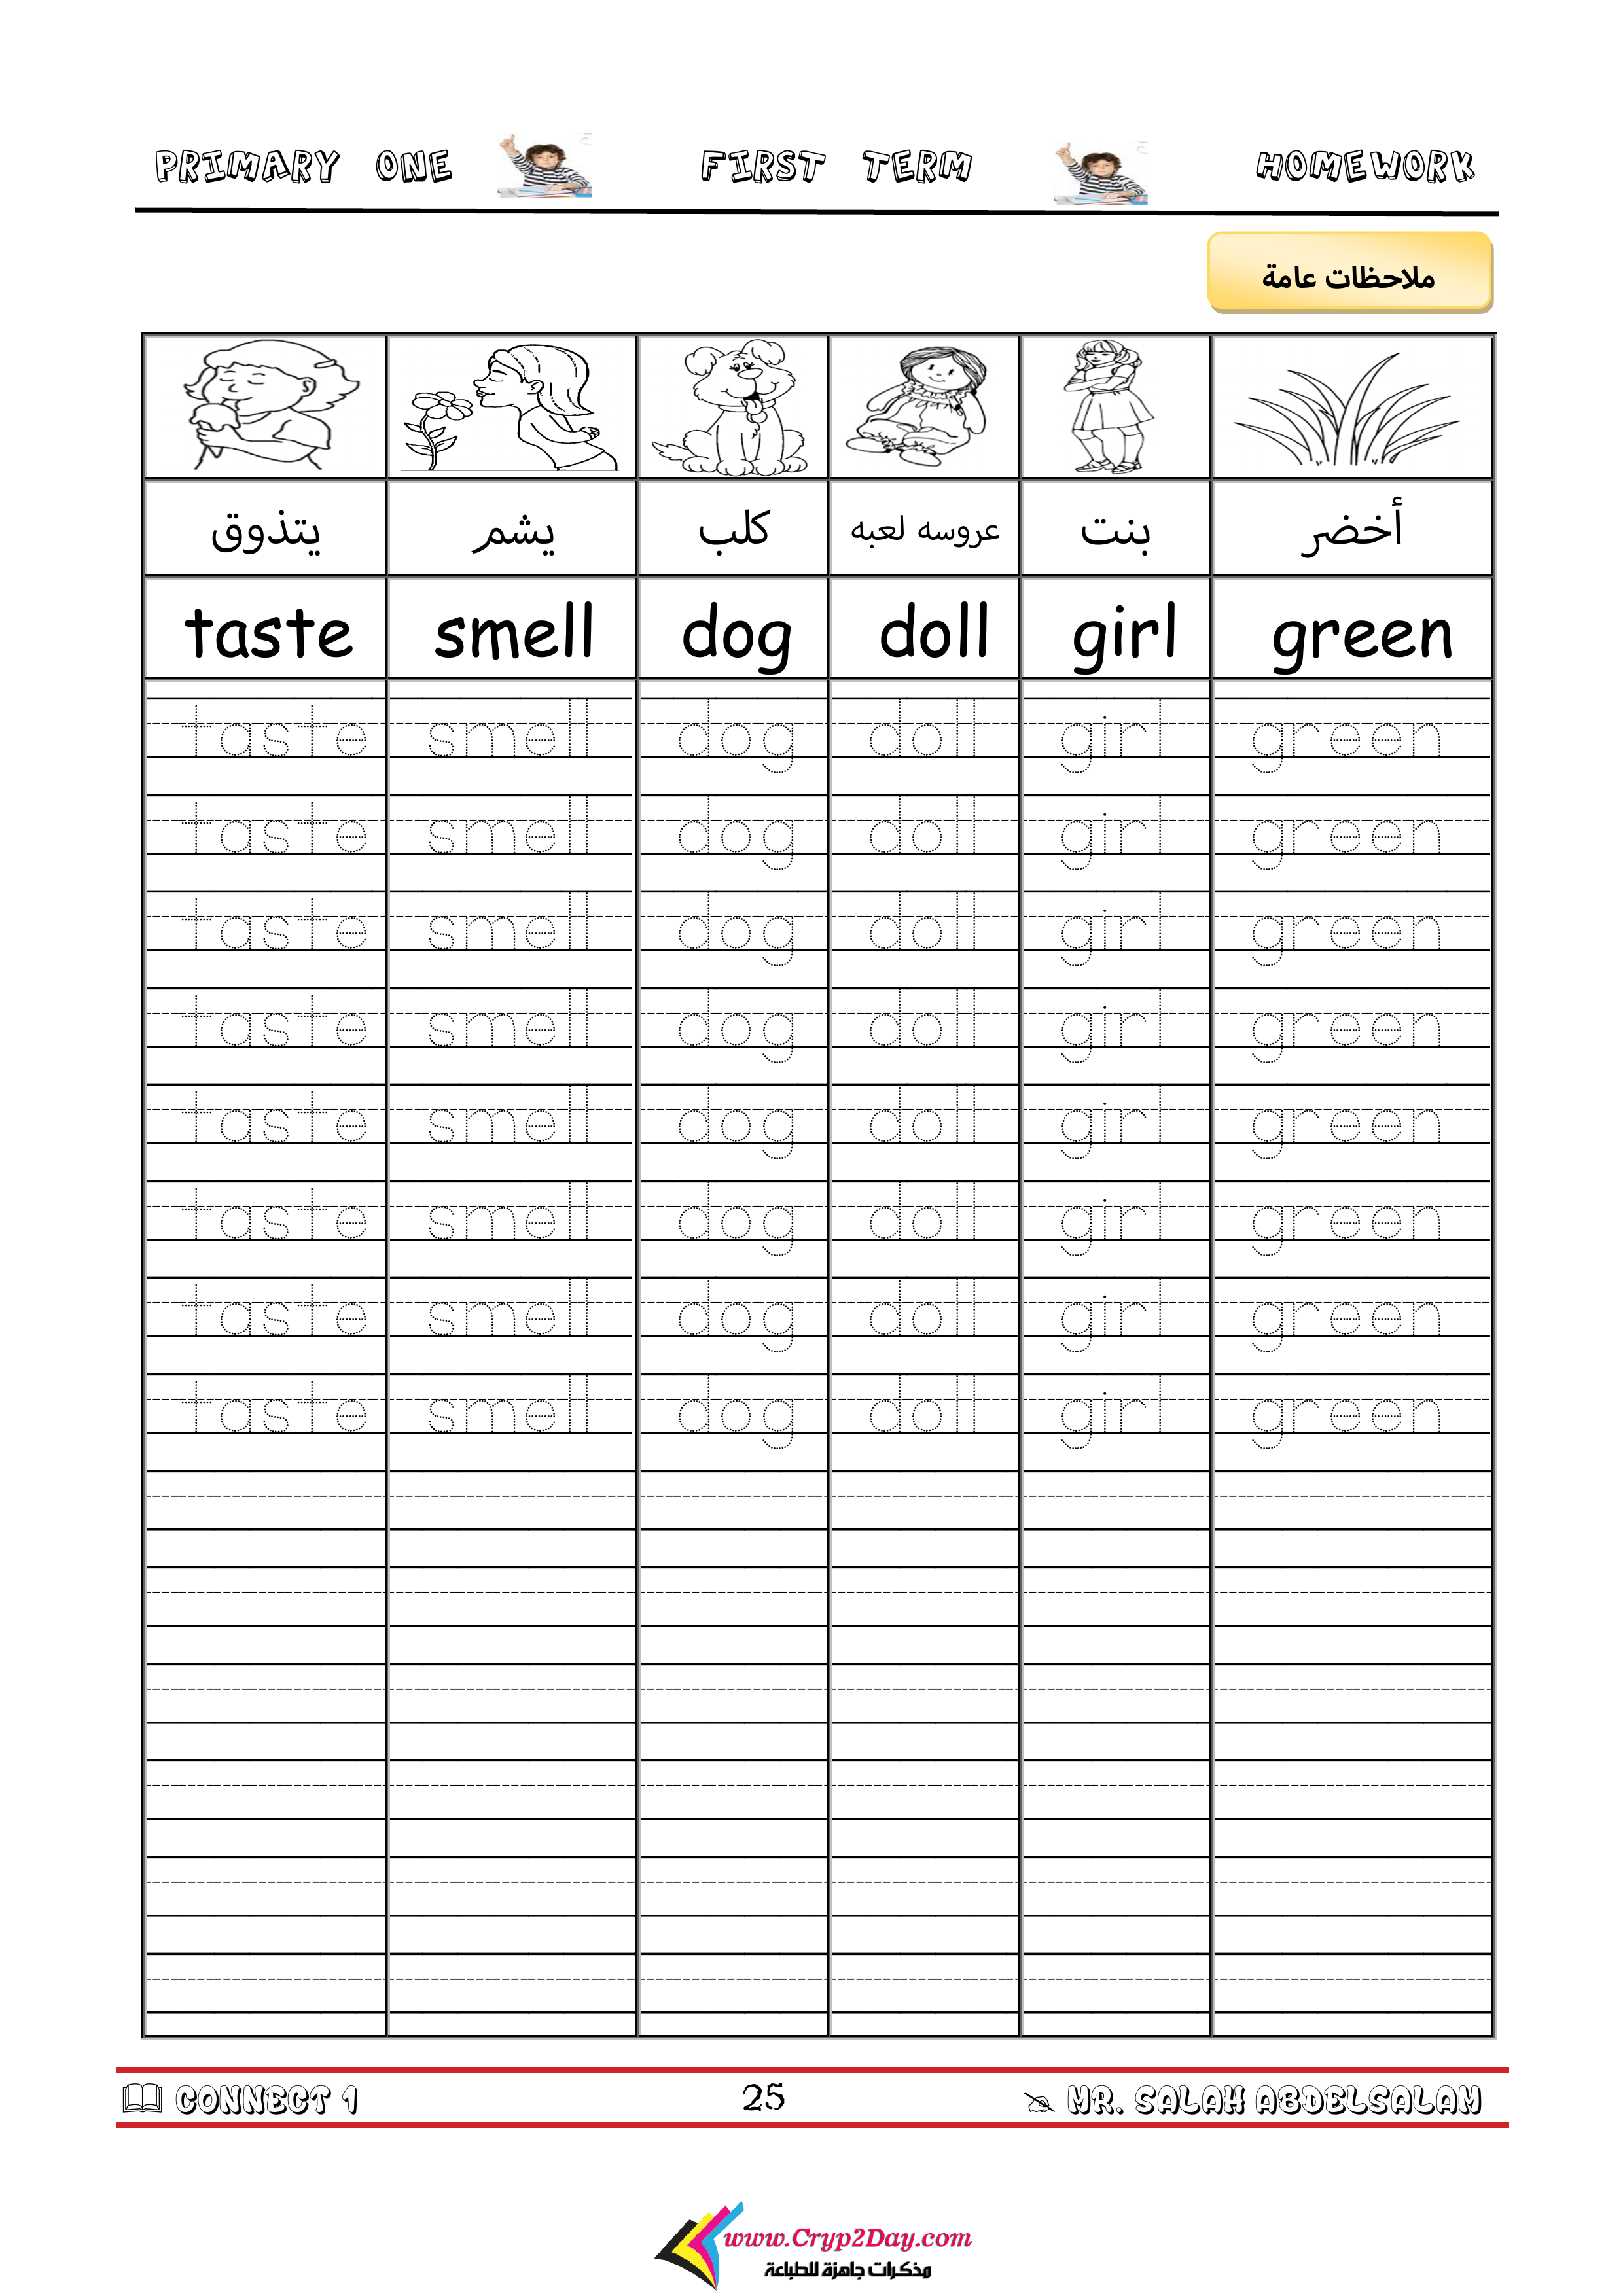 PRIMARY ONE FIRST TERM HOMEWORK
ملاحظات عامة
يتذوق يشم كلب عروسه لعبه بنت أخضر
taste smell dog doll girl green
taste smell dog doll girl green
taste smell dog doll girl green
taste smell dog doll girl green
taste smell dog doll girl green
taste smell dog doll girl green
taste smell dog doll girl green
taste smell dog doll girl green
taste smell dog doll girl green
CONNECT 1 25 MR. SALAH ABDELSALAM
www.Cryp2Day.com
مذكرات جاهزة للطباعة